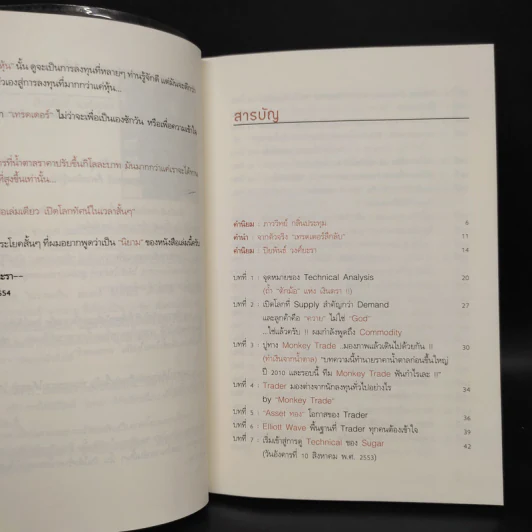 หุ้น" นั้น ดูจะเป็นการลงทุนที่หลายๆ ท่านรู้จักดี แต่มันจะดีกว่า
ัวเองสู่การลงทุนที่มากกว่าแค่หุ้น...
"เทรดเดอร์" ไม่ว่าจะเพื่อเป็นเองซักวัน หรือเพื่อความเข้าใจ
ที่น้ำตาลราคาปรับขึ้นกิโลละบาท มันมากกว่าแค่เราจะได้
ที่สูงขึ้นเท่านั้น...
เล่มเดียว เปิดโลกทัศน์ในเวลาสั้นๆ"
ระโยคสั้นๆ ที่ผมอยากพูดว่าเป็น "นิยาม" ของหนังสือเล่มนี้ครับ
ะรา--
554
สารบัญ
คำนิยม : ภาววิทย์ กลิ่นประทุม 6
คำนำ : จากตัวจริง "เทรดเดอร์ลึกลับ" 11
คำนิยม : ปิยพันธ์ วงศ์ยะรา 14
บทที่ 1 : จุดหมายของ Technical Analysis 20
(ถ้ำ "ชักมือ" แห่ง เงินตรา !!)
บทที่ 2 : เปิดโลกที่ Supply สำคัญกว่า Demand 27
และลูกค้าคือ "ควาย" ไม่ใช่ "God"
...ใช่แล้วครับ !! ผมกำลังพูดถึง Commodity
บทที่ 3 : ปูทาง Monkey Trade ..มองภาพแล้วเดินไปด้วยกัน !! 30
(ทำเงินจากน้ำตาล) "บทความนี้ทำนายราคาน้ำตาลก่อนขึ้นใหญ่
ปี 2010 และรอบนี้ ทีม Monkey Trade ฟันกำไรเละ !!"
บทที่ 4 : Trader มองต่างจากนักลงทุนทั่วไปอย่างไร 34
by "Monkey Trade"
บทที่ 5 : "Asset ทอง" โอกาสของ Trader 36
บทที่ 6 : Elliott Wave พื้นฐานที่ Trader ทุกคนต้องเข้าใจ 39
บทที่ 7 : เริ่มเข้าสู่การดู Technical ของ Sugar 42
(วันอังคารที่ 10 สิงหาคม พ.ศ. 2553)